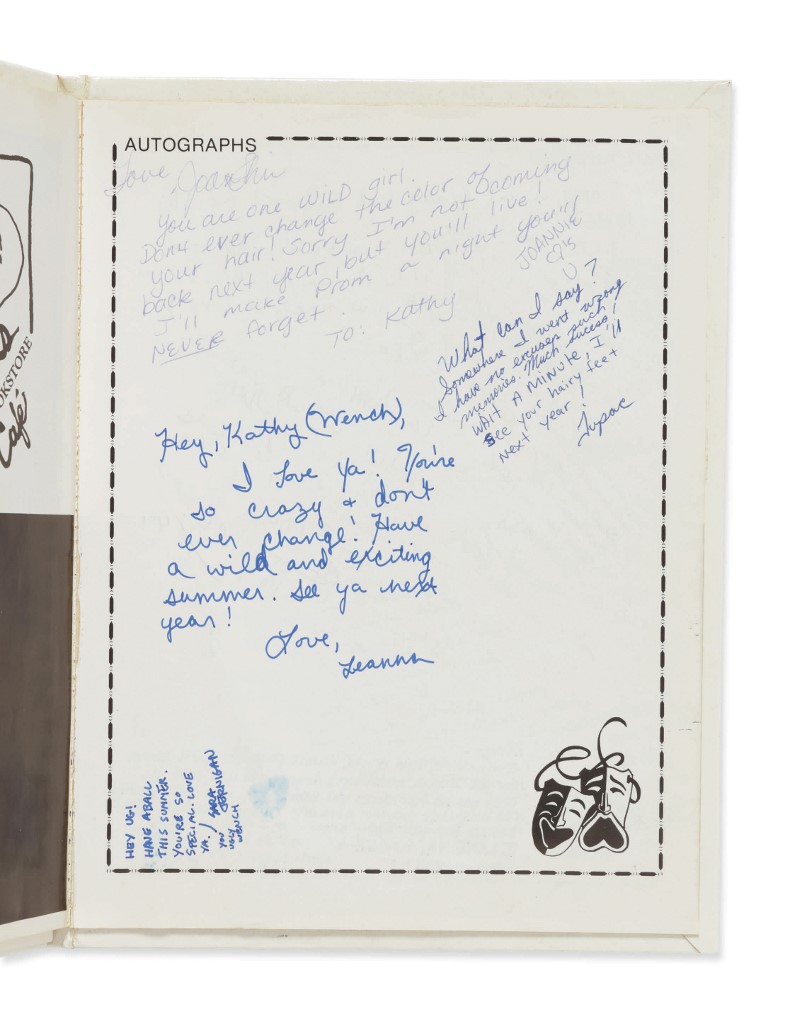 OOKSTORE
Café
AUTOGRAPHS
Love
You are one WILD girl.
Dont ever change the color of
your hair! Sorry I'm not coming
back next year, but you'll live!
I'll make Prom a night you'll
NEVER forget.
TO: Kathy
JOANNIE
What can I say?
Somewhere I went wrong
I have no excuses such
memories. Much Sucess!
WAIT A MINUTE, I'll
See your hairy feet
Next year!
Tupac
Hey, Kathy (Wench),
I love ya! You're
so crazy & don't
ever change! Have
a wild and exciting
summer. See ya next
year!
Love,
Leanna
HEY UG!
HAVE A BALL
THIS SUMMER.
YOU'RE SO
SPECIAL. LOVE
YA. / SARA
JERNIGAN
YOU
UGLY
WENCH